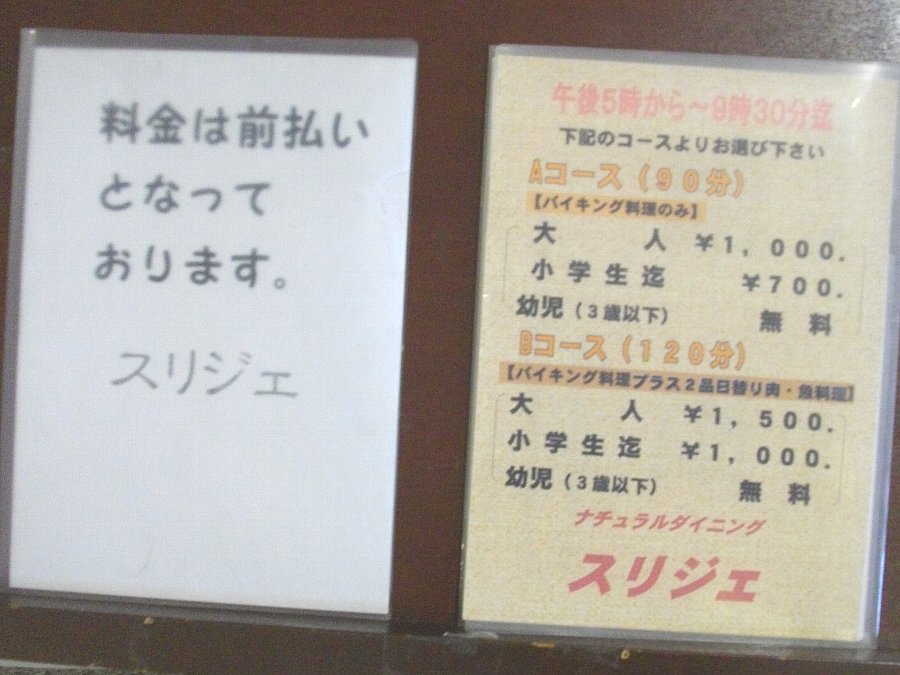 料金は前払い
となって
おります。
スリジェ
午後5時から～9時30分迄
下記のコースよりお選び下さい
Aコース（90分）
【バイキング料理のみ】
大人 ￥1，000．
小学生迄 ￥700．
幼児（3歳以下） 無料
Bコース（120分）
【バイキング料理プラス2品日替り肉・魚料理】
大人 ￥1，500．
小学生迄 ￥1，000．
幼児（3歳以下） 無料
ナチュラルダイニング
スリジェ